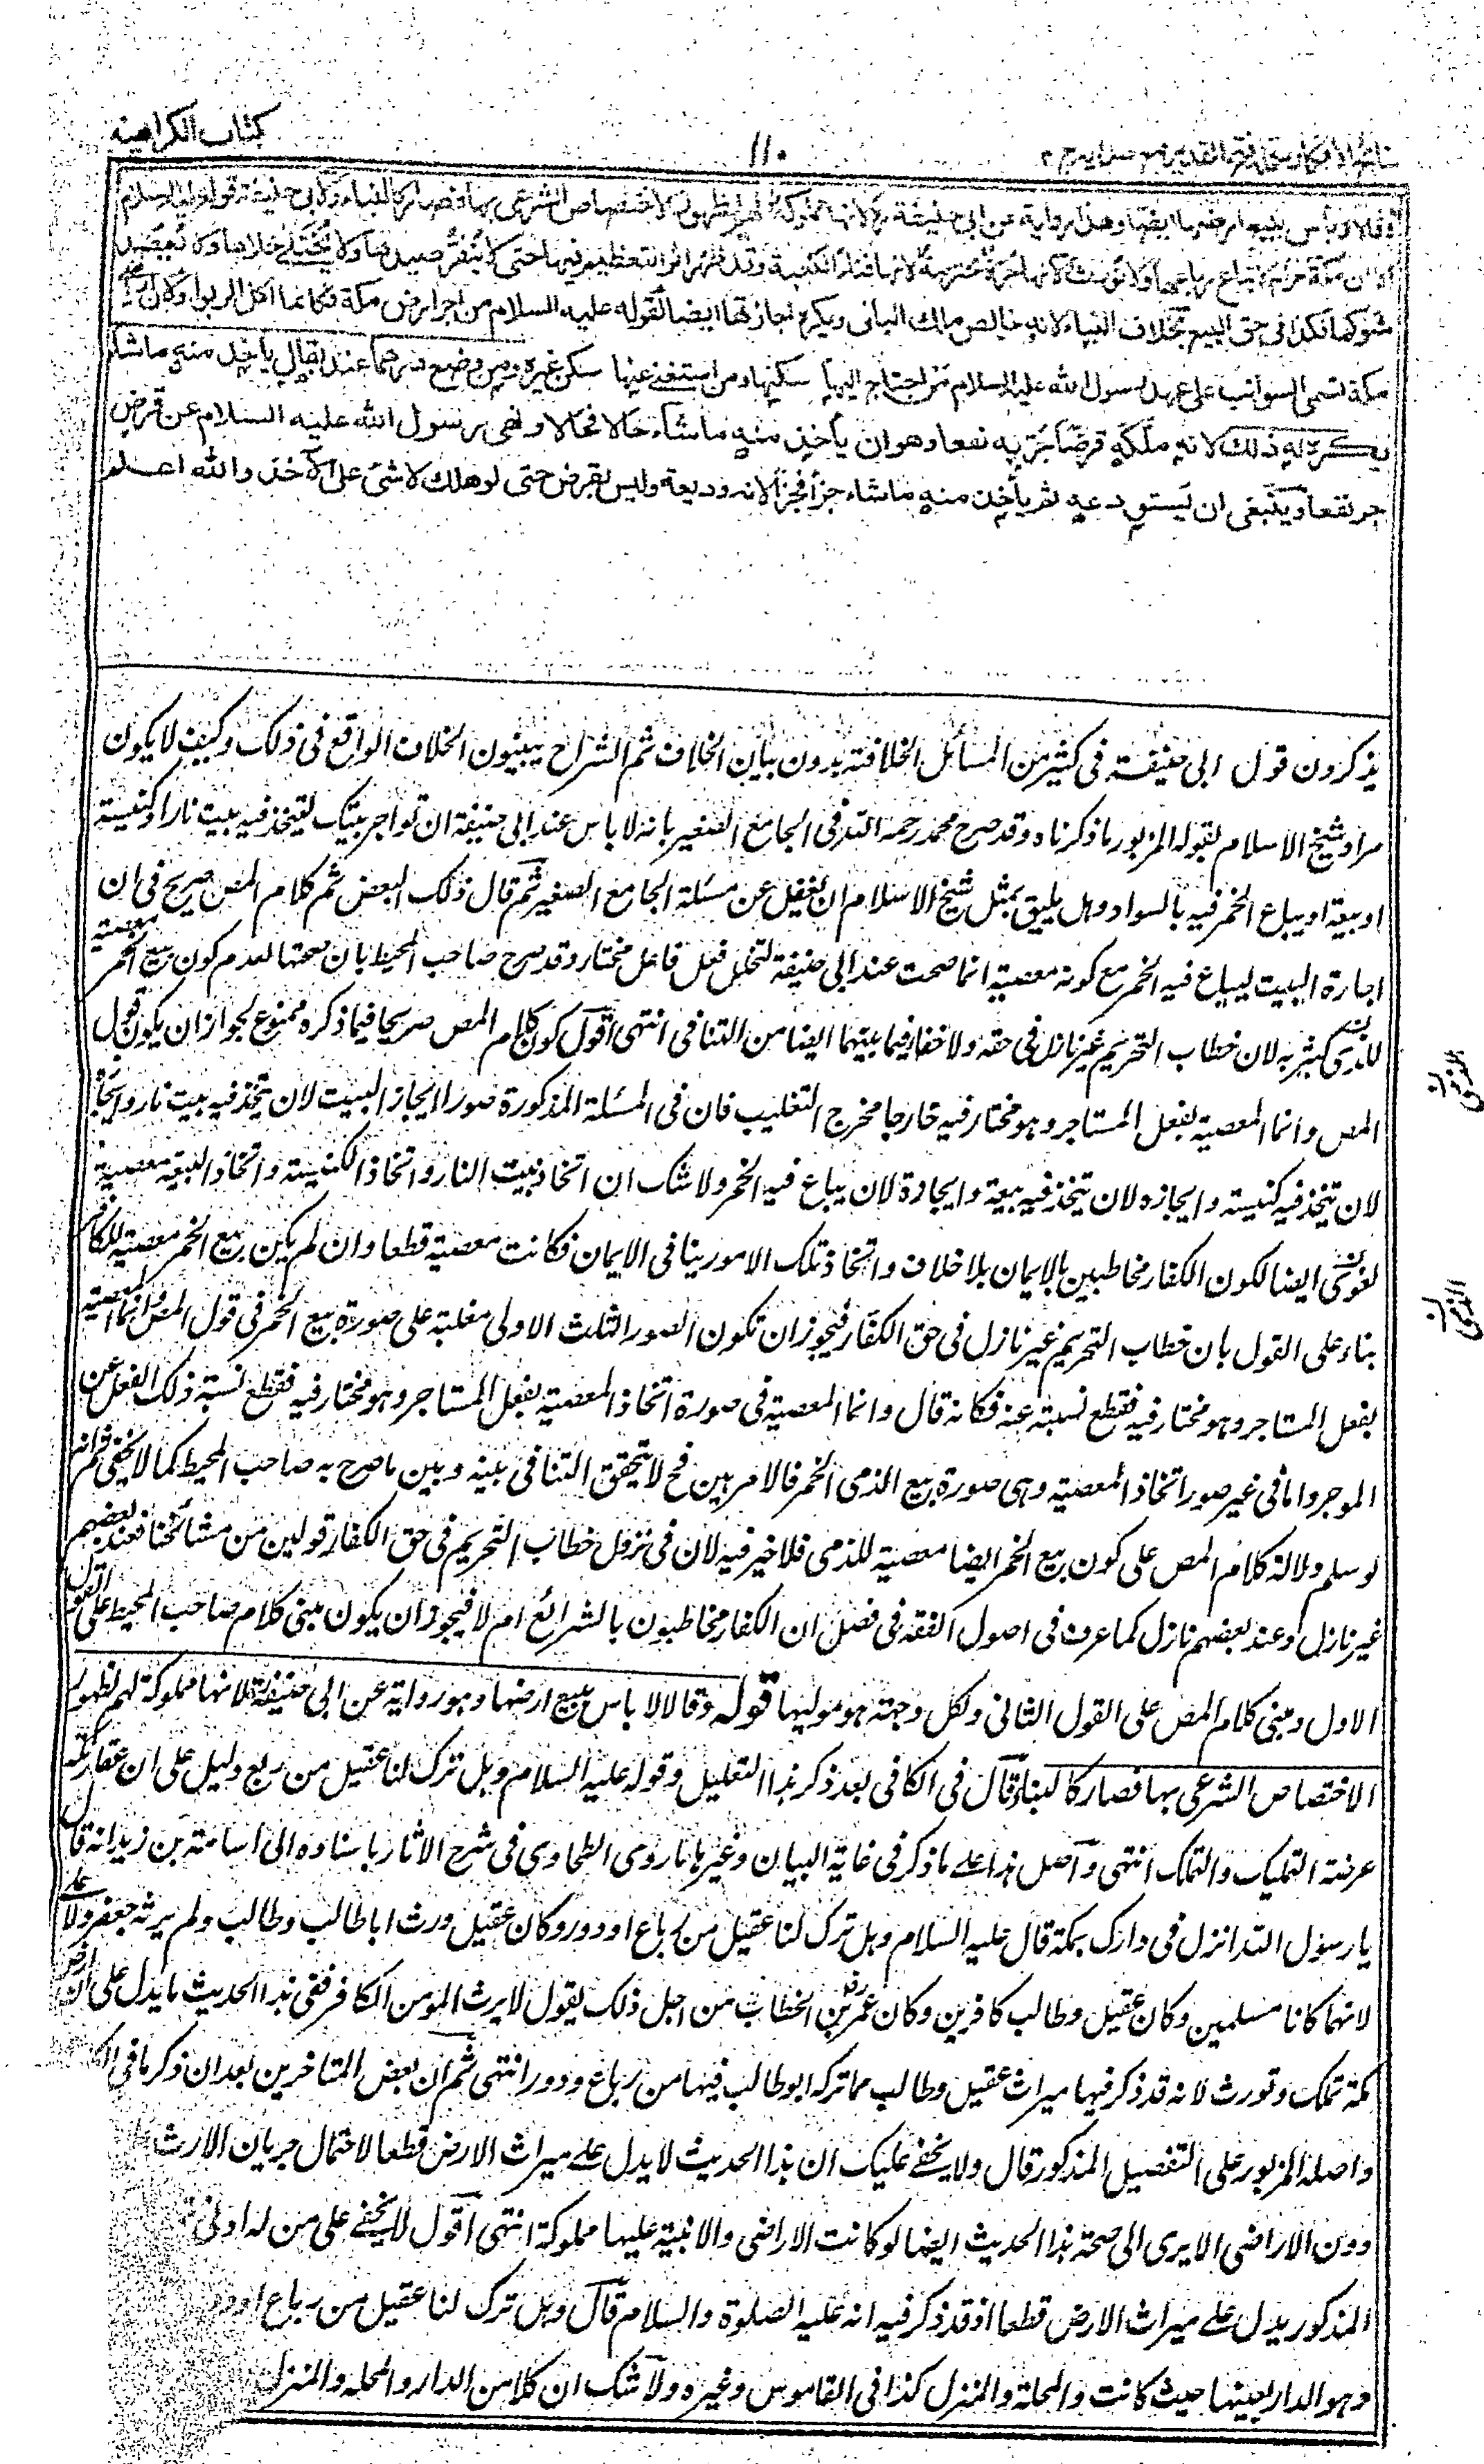 كتاب الكراهية
١١٠
نتائج الافكار تكملة فتح القدير مع هداية ج ٤
وقالا لا بأس ببيع ارضها ايضا وهذا رواية عن ابي حنيفة رح لانها مملوكة لهم لظهور الاختصاص الشرعي بها فصار كالبناء ولابي حنيفة قوله عليه السلام
الا ان مكة حرام لا تباع رباعها ولا تورث لانها حرة محترمة لانها فناء الكعبة وقد ظهر اثر التعظيم فيها حتى لا ينفر صيدها ولا يختلى خلاها ولا يعضد
شوكها فكذا في حق البيع بخلاف البناء لانه خالص ملك الباني ويكره اجارتها ايضا لقوله عليه السلام من اجر ارض مكة فكانما اكل الربوا ولان اراضي
مكة تسمى السوائب على عهد رسول الله عليه السلام من احتاج اليها سكنها ومن استغنى عنها سكن غيره ومن وضع درهما عند بقال يأخذ منه ما شاء
يكره له ذلك لانه ملكه قرضا جر به نفعا وهو ان يأخذ منه ما شاء حالا فحالا ونهى رسول الله عليه السلام عن قرض
جر نفعا وينبغي ان يستودعه ثم يأخذ منه ما شاء جزأ فجزأ لانه وديعة وليس بقرض حتى لو هلك لا شئ على الآخذ والله اعلم
يذكرون قول ابي حنيفة في كثير من المسائل الخلافية بدون بيان الخلاف ثم الشراح يبينون الخلاف الواقع في ذلك وكيف لا يكون
مراد شيخ الاسلام بقوله المزبور ما ذكرناه وقد صرح محمد رحمه الله في الجامع الصغير بانه لا باس عند ابي حنيفة ان تواجر بيتك ليتخذ فيه بيت نار او كنيسة
او بيعة او يباع الخمر فيه بالسواد وهل يليق بمثل شيخ الاسلام ان يغفل عن مسئلة الجامع الصغير ثم قال ذلك البعض ثم كلام المص صريح في ان
اجارة البيت ليباع فيه الخمر مع كونه معصية انما صحت عند ابي حنيفة لتخلل فعل فاعل مختار وقد صرح صاحب المحيط بان صحتها لعدم كون بيع الخمر معصية
للذمي كشربه لان خطاب التحريم غير نازل في حقه ولا خفاء فيما بينهما ايضا من التنافي انتهى اقول كون كلام المص صريحا فيما ذكره ممنوع لجواز ان يكون قول
المص وانما المعصية بفعل المستاجر وهو مختار فيه خارجا مخرج التغليب فان في المسئلة المذكورة صورا ايجار البيت لان يتخذ فيه بيت نار وايجاره
لان يتخذ فيه كنيسة وايجاره لان يتخذ فيه بيعة وايجاره لان يباع فيه الخمر ولا شك ان اتخاذ بيت النار واتخاذ الكنيسة واتخاذ البيعة معصية
للذمي ايضا لكون الكفار مخاطبين بالايمان بلا خلاف واتخاذ تلك الامور ينافي الايمان فكانت معصية قطعا وان لم يكن بيع الخمر معصية للكافر
بناء على القول بان خطاب التحريم غير نازل في حق الكفار فيجوز ان تكون الصور الثلث الاولى مغلبة على صورة بيع الخمر في قول المص وانما المعصية
بفعل المستاجر وهو مختار فيه فقطع نسبته عنه فكانه قال وانما المعصية في صورة اتخاذ المعصية بفعل المستاجر وهو مختار فيه فقطع نسبة ذلك الفعل عن
الموجر واما في غير صور اتخاذ المعصية وهي صورة بيع الذمي الخمر فالامر بين فح لا يتحقق التنافي بينه وبين ما صرح به صاحب المحيط كما لا يخفى ثم انه
لو سلم دلالة كلام المص على كون بيع الخمر ايضا معصية للذمي فلا ضير فيه لان في نزول خطاب التحريم في حق الكفار قولين من مشائخنا فعند بعضهم
غير نازل وعند بعضهم نازل كما عرف في اصول الفقه في فصل ان الكفار مخاطبون بالشرائع ام لا فيجوز ان يكون مبنى كلام صاحب المحيط على القول
الاول ومبنى كلام المص على القول الثاني ولكل وجهة هو موليها قوله وقالا لا باس ببيع ارضها وهو رواية عن ابي حنيفة لانها مملوكة لهم لظهور
الاختصاص الشرعي بها فصار كالبناء قال في الكافي بعد ذكر هذا التعليل وقوله عليه السلام وهل ترك لنا عقيل من ربع دليل على ان عقار مكة
عرضة التمليك والتملك انتهى واصل هذا على ما ذكر في غاية البيان وغيرها ما روى الطحاوي في شرح الاثار باسناده الى اسامة بن زيد انه قال
يا رسول الله انزل في دارك بمكة قال عليه السلام وهل ترك لنا عقيل من رباع او دور وكان عقيل ورث ابا طالب وطالب ولم يرثه جعفر ولا علي
لانهما كانا مسلمين وكان عقيل وطالب كافرين وكان عمر بن الخطاب من اجل ذلك يقول لا يرث المومن الكافر ففي هذا الحديث ما يدل على ان ارض
مكة تملك وتورث لانه قد ذكر فيها ميراث عقيل وطالب مما تركه ابو طالب فيها من رباع ودور انتهى ثم ان بعض المتاخرين بعد ان ذكر ما في
واصله المزبور على التفصيل المذكور قال ولا يخفى عليك ان هذا الحديث لا يدل على ميراث الارض قطعا لاحتمال جريان الارث
دون الاراضي الا يرى الى صحة هذا الحديث ايضا لو كانت الاراضي والابنية عليها مملوكة انتهى اقول لا يخفى على من له ادنى
المذكور يدل على ميراث الارض قطعا اذ قد ذكر فيه انه عليه الصلوة والسلام قال وهل ترك لنا عقيل من رباع او
وهو الدار بعينها حيث كانت والمحلة والمنزل كذا في القاموس وغيره ولا شك ان كلا من الدار والمحلة والمنزل